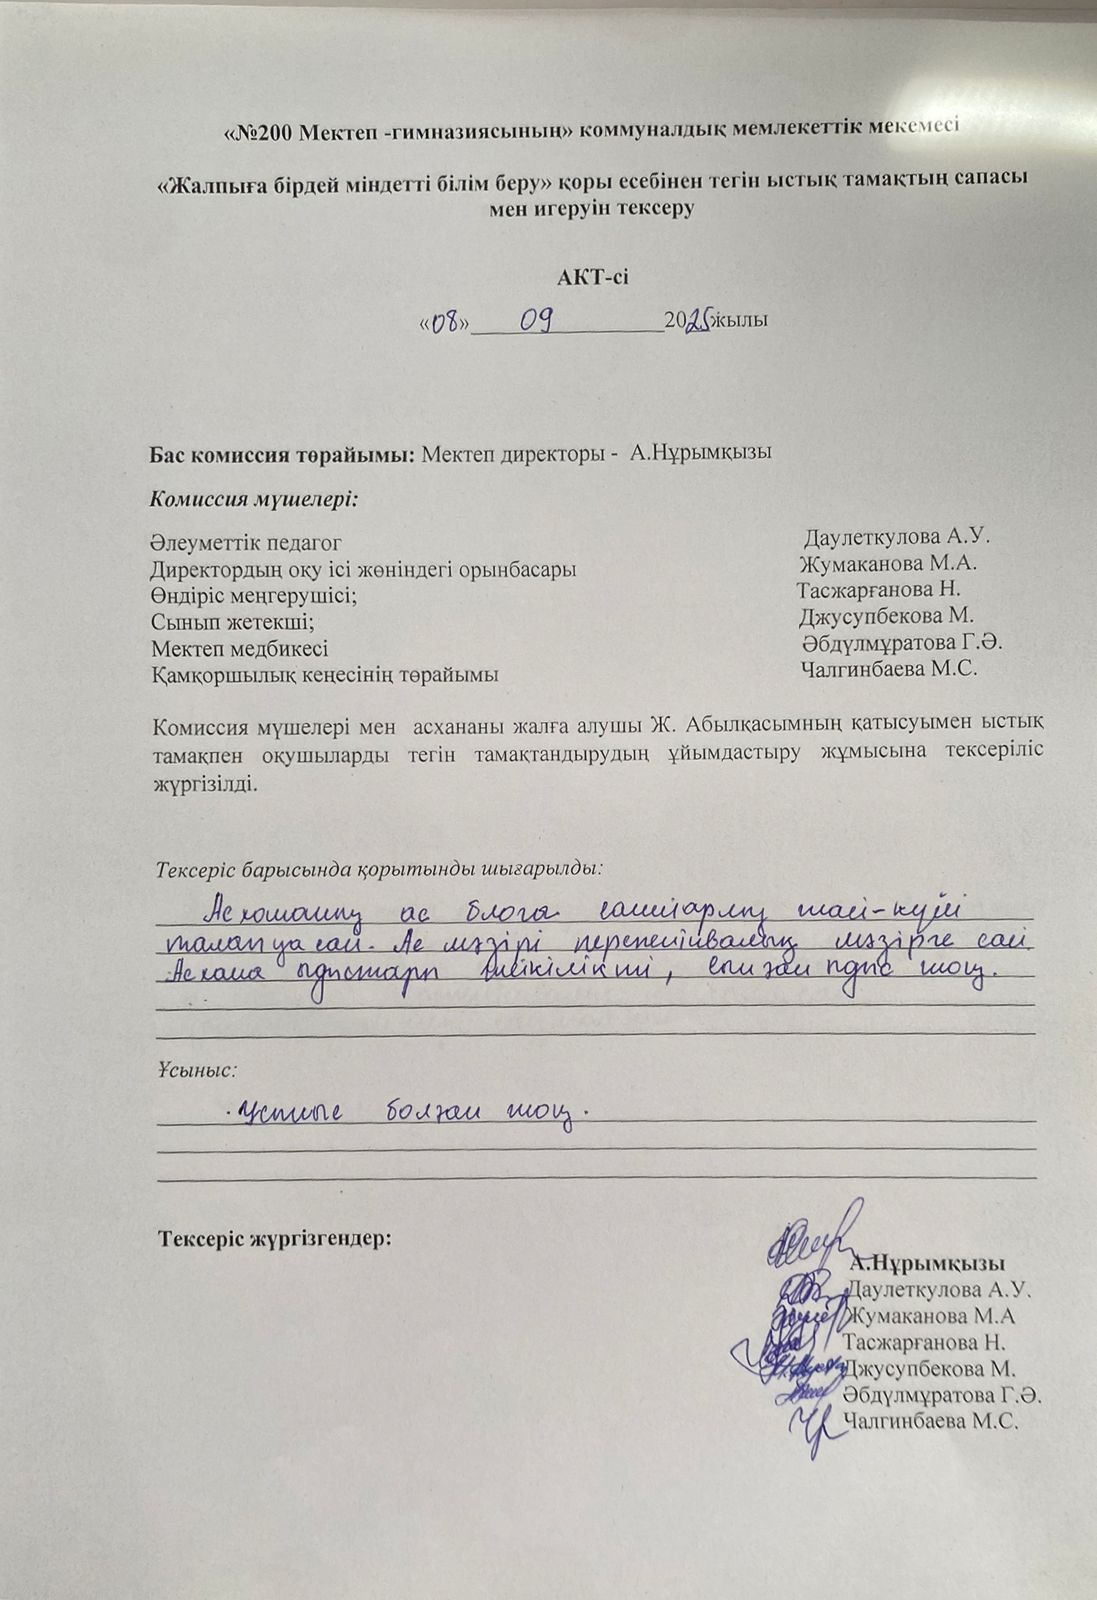 «№200 Мектеп -гимназиясының» коммуналдық мемлекеттік мекемесі
«Жалпыға бірдей міндетті білім беру» қоры есебінен тегін ыстық тамақтың сапасы
мен игеруін тексеру
АКТ-сі
«08» 09 2025 жылы
Бас комиссия төрайымы: Мектеп директоры - А.Нұрымқызы
Комиссия мүшелері:
Әлеуметтік педагог Даулеткулова А.У.
Директордың оқу ісі жөніндегі орынбасары Жумаканова М.А.
Өндіріс меңгерушісі; Тасжарғанова Н.
Сынып жетекші; Джусупбекова М.
Мектеп медбикесі Әбдүлмұратова Г.Ә.
Қамқоршылық кеңесінің төрайымы Чалгинбаева М.С.
Комиссия мүшелері мен асхананы жалға алушы Ж. Абылқасымның қатысуымен ыстық
тамақпен оқушыларды тегін тамақтандырудың ұйымдастыру жұмысына тексеріліс
жүргізілді.
Тексеріс барысында қорытынды шығарылды:
Асхананың ас блогы жай-күйі
талапқа сай. Ас мәзірі перспективалық мәзірге сай.
Асхана ыдыстары жеткілікті, сынған ыдыс жоқ.
Ұсыныс:
Ұсыныс болған жоқ.
Тексеріс жүргізгендер:
А.Нұрымқызы
Даулеткулова А.У.
Жумаканова М.А
Тасжарғанова Н.
Джусупбекова М.
Әбдүлмұратова Г.Ә.
Чалгинбаева М.С.